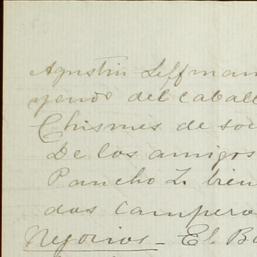 Agustin Leffman
yendo del caball
Chismes de soc
De los amigos
Pancho L. bien
das campero
Negocios - El Ba